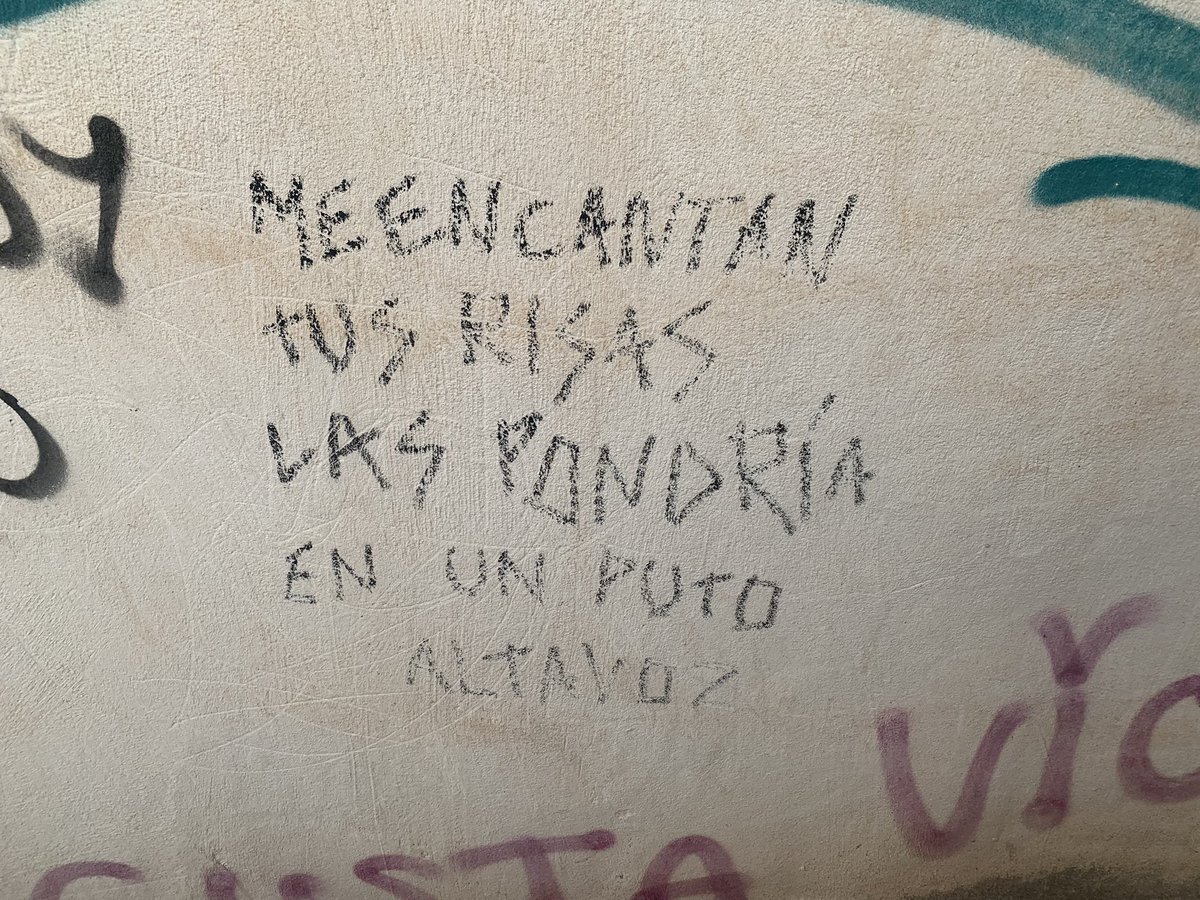 MEENCANTAN
tUS RISAS
LAS PONDRÍA
EN UN PUtO
ALTAVOZ